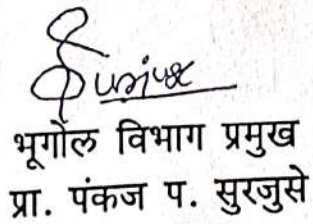 भूगोल विभाग प्रमुख
प्रा. पंकज प. सुरजुसे